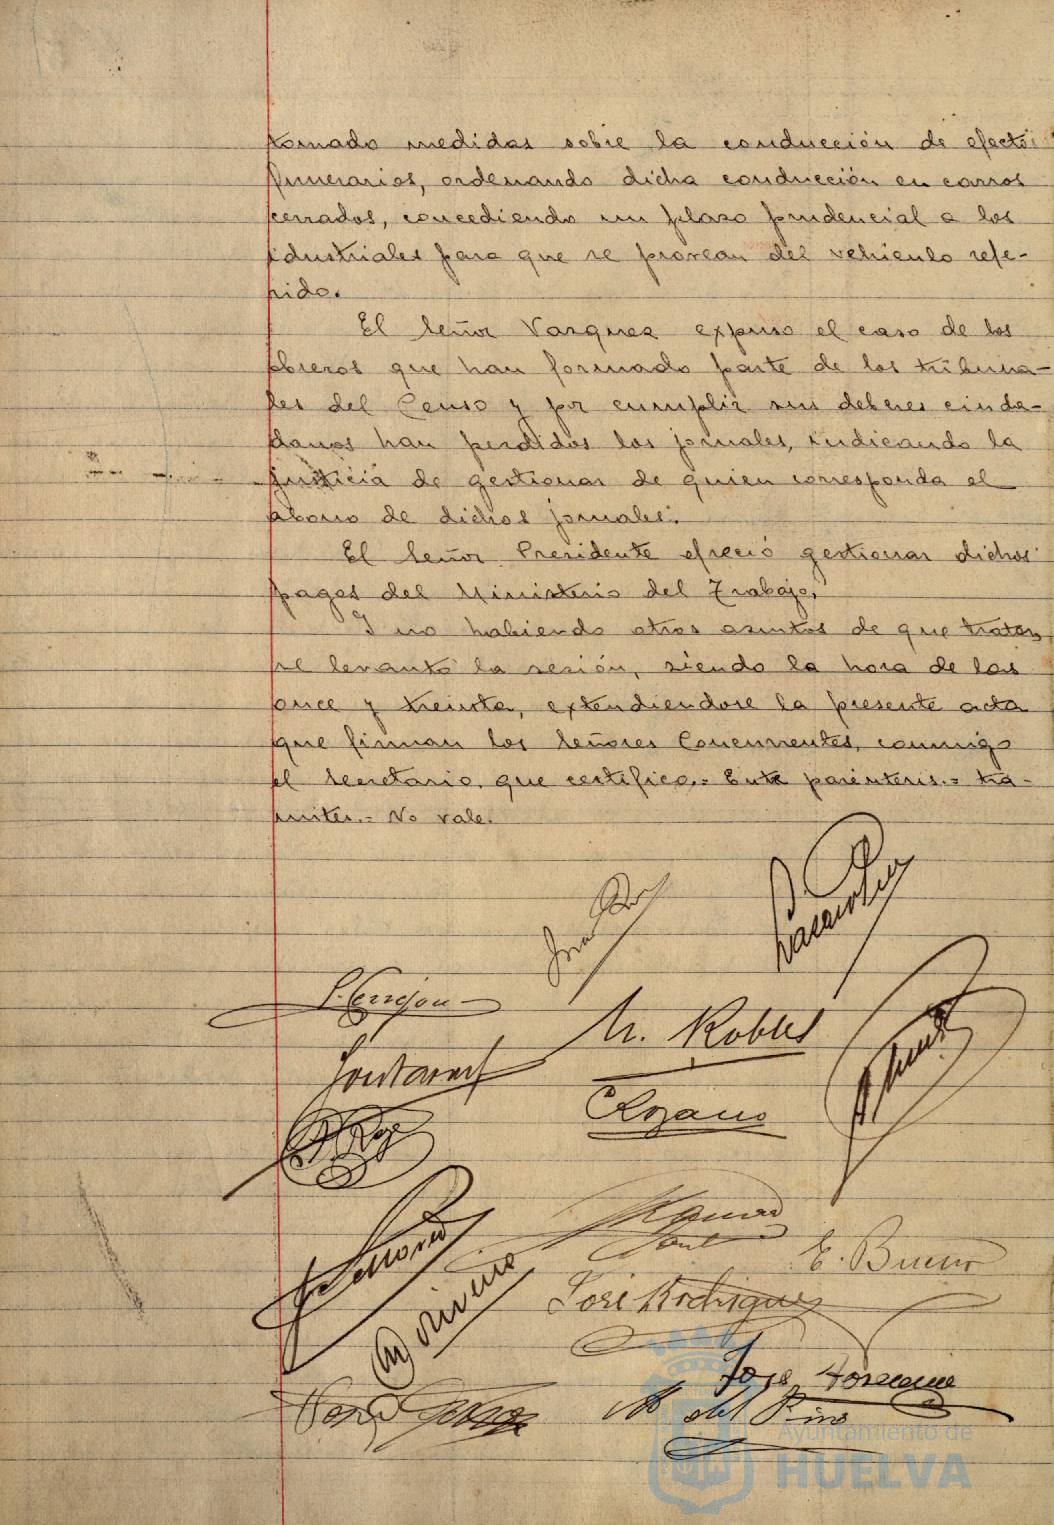 tomado medidas sobre la conducción de efectos
funerarios, ordenando dicha conducción en carros
cerrados, concediendo un plazo prudencial a los
idustriales para que se provean del vehiculo refe-
rido.
El Señor Vazquez expuso el caso de los
obreros que han formado parte de los tribuna-
les del Censo y por cumplir sus deberes ciuda-
danos han perdidos los jornales, indicando la
justicia de gestionar de quien corresponda el
abono de dichos jornales.
El Señor Presidente ofreció gestionar dichos
pagos del Ministerio del Trabajo.
Y no habiendo otros asuntos de que tratar,
se levantó la sesión, siendo la hora de las
once y treinta, extendiendose la presente acta
que firman los Señores Concurrentes, conmigo
el Secretario, que certifico.- Entre paréntesis.- trá-
mites.- No vale.
P. Cerrejon
M. Robles
E. Bueno
José Rodriguez
M. del Pino
Ayuntamiento de
HUELVA